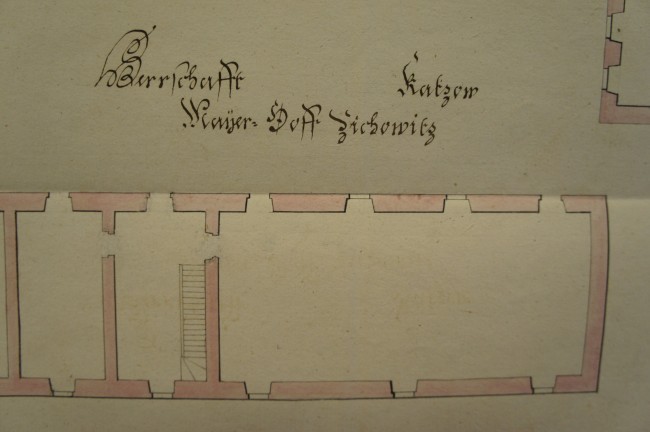 Herrschafft Katzow
Mayer=Hoff Zichowitz